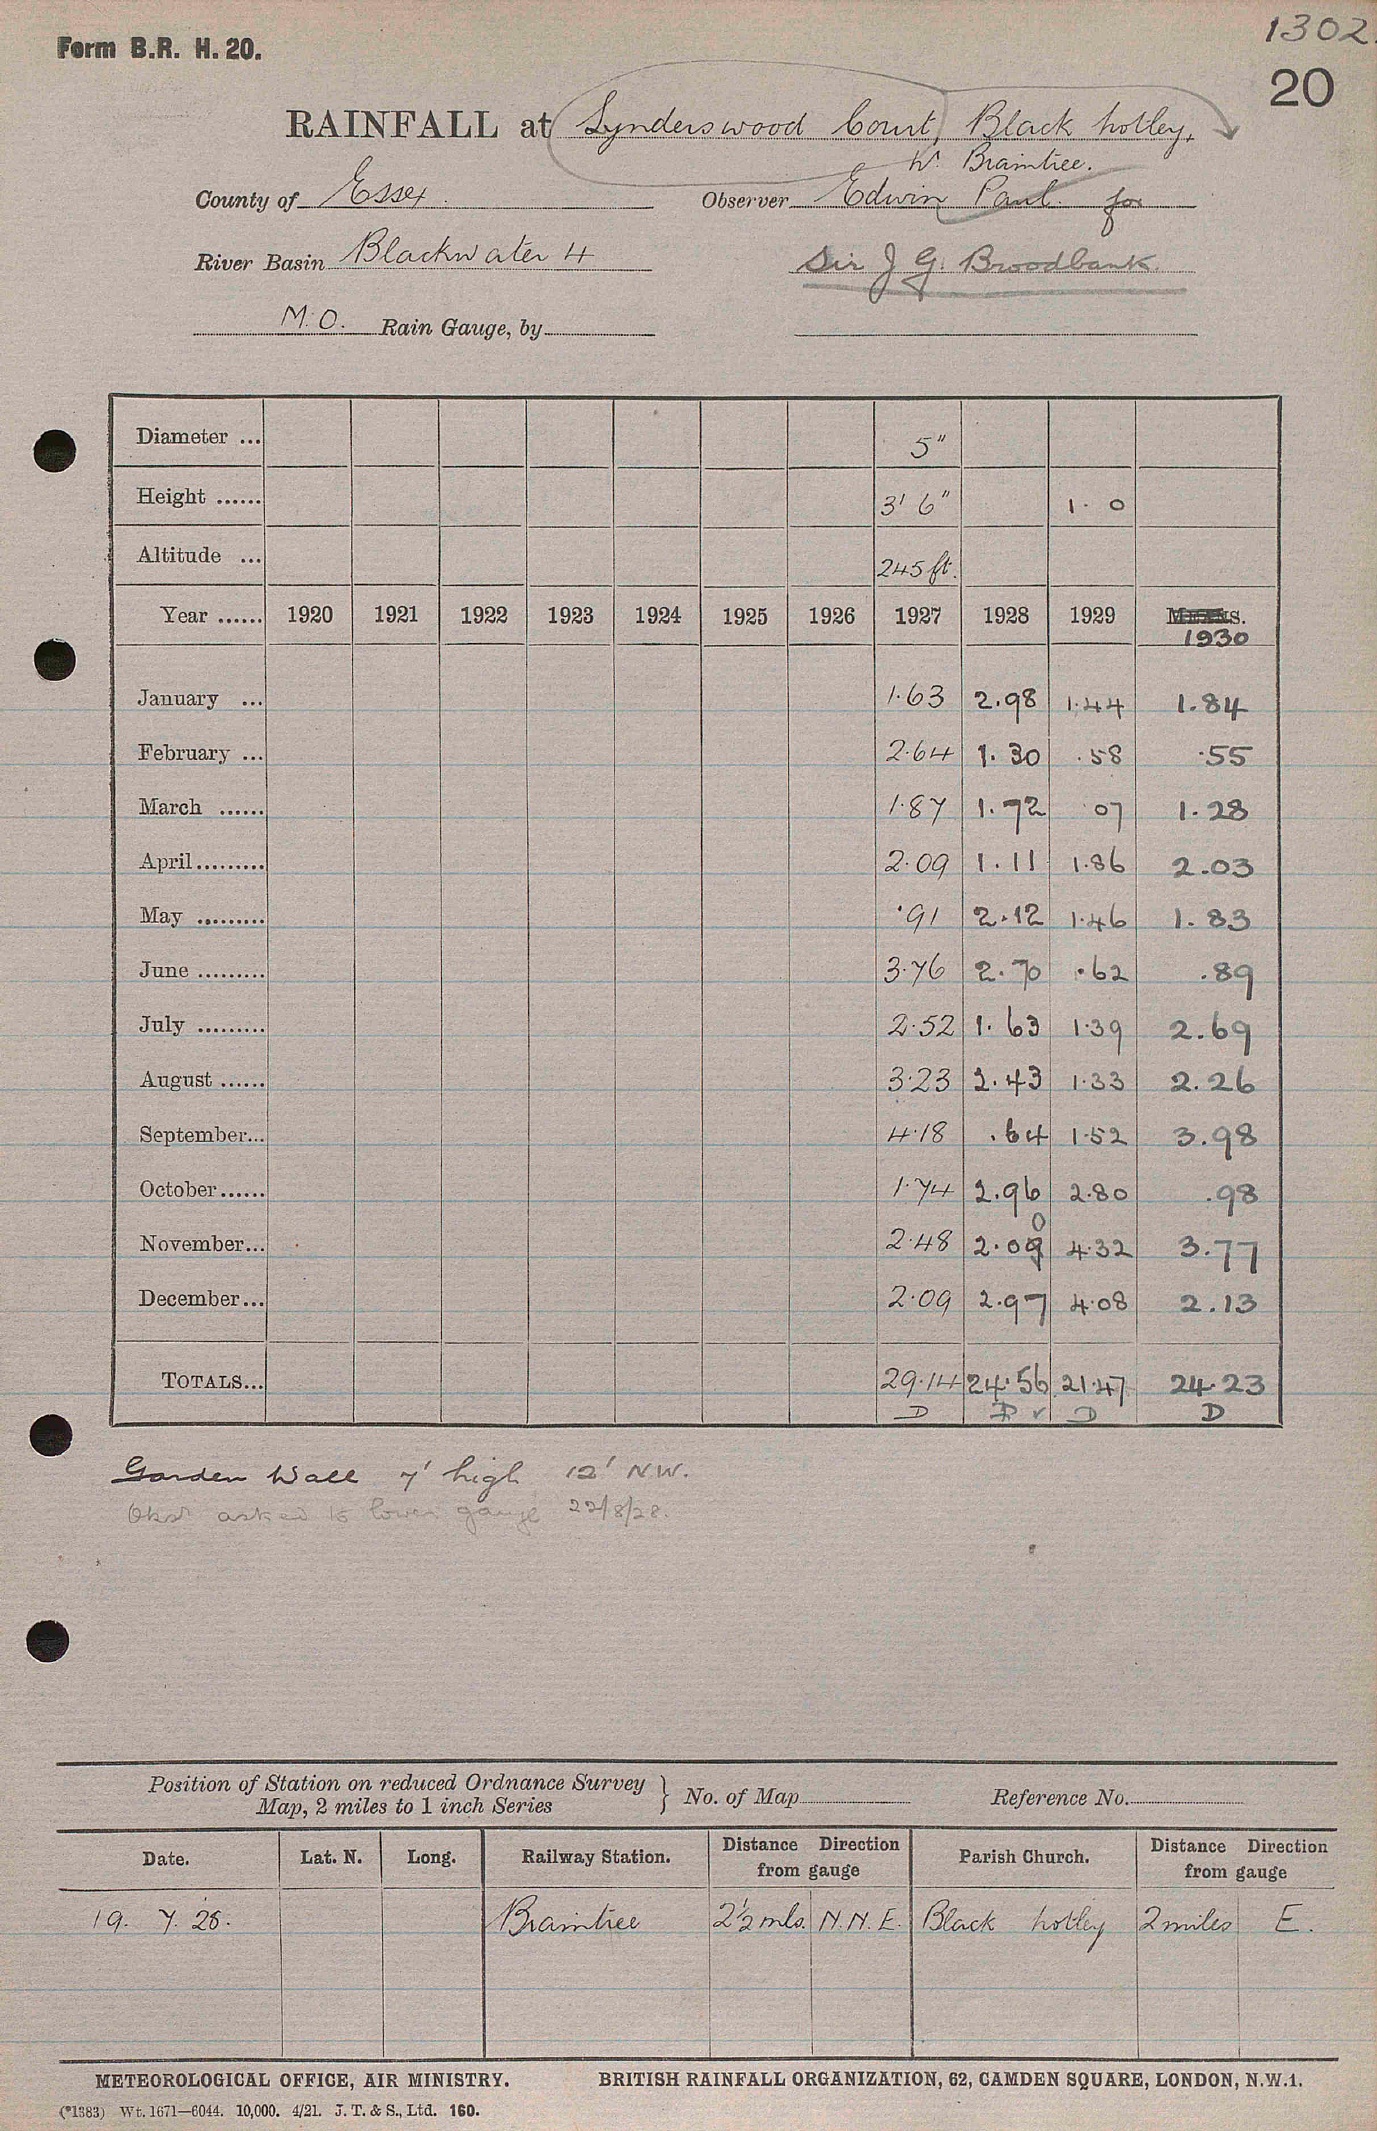 1302.
Form B.R. H. 20.
20
RAINFALL at Lynderswood Court, Black Notley,
Nr Braintree.
County of Essex. Observer Edwin Paul. for
River Basin Blackwater 4 Sir J G. Broodbank
M.O. Rain Gauge, by
Diameter ... 5"
Height ...... 3' 6" 1. 0
Altitude ... 245 ft.
Year ...... 1920 1921 1922 1923 1924 1925 1926 1927 1928 1929 MEANS.
1930
January ... 1.63 2.98 1.44 1.84
February ... 2.64 1.30 .58 .55
March ...... 1.87 1.72 07 1.28
April......... 2.09 1.11 1.86 2.03
May ......... .91 2.12 1.46 1.83
June ......... 3.76 2.70 .62 .89
July ......... 2.52 1.63 1.39 2.69
August ...... 3.23 2.43 1.33 2.26
September... 4.18 .64 1.52 3.98
October...... 1.74 2.96 2.80 .98
0
November... 2.48 2.09 4.32 3.77
December... 2.09 2.97 4.08 2.13
TOTALS... 29.14 24.56 21.47 24.23
D D ✓ D D
Garden Wall 7' high 12' N.W.
Obsr asked to lower gauge 22/8/28.
Position of Station on reduced Ordnance Survey
Map, 2 miles to 1 inch Series } No. of Map Reference No.
Date. Lat. N. Long. Railway Station. Distance Direction from gauge Parish Church. Distance Direction from gauge
19. 7. 28. Braintree 2½ mls. N.N.E. Black Notley 2 miles E.
METEOROLOGICAL OFFICE, AIR MINISTRY. BRITISH RAINFALL ORGANIZATION, 62, CAMDEN SQUARE, LONDON, N.W.1.
(*1383) Wt. 1671—6044. 10,000. 4/21. J. T. & S., Ltd. 160.